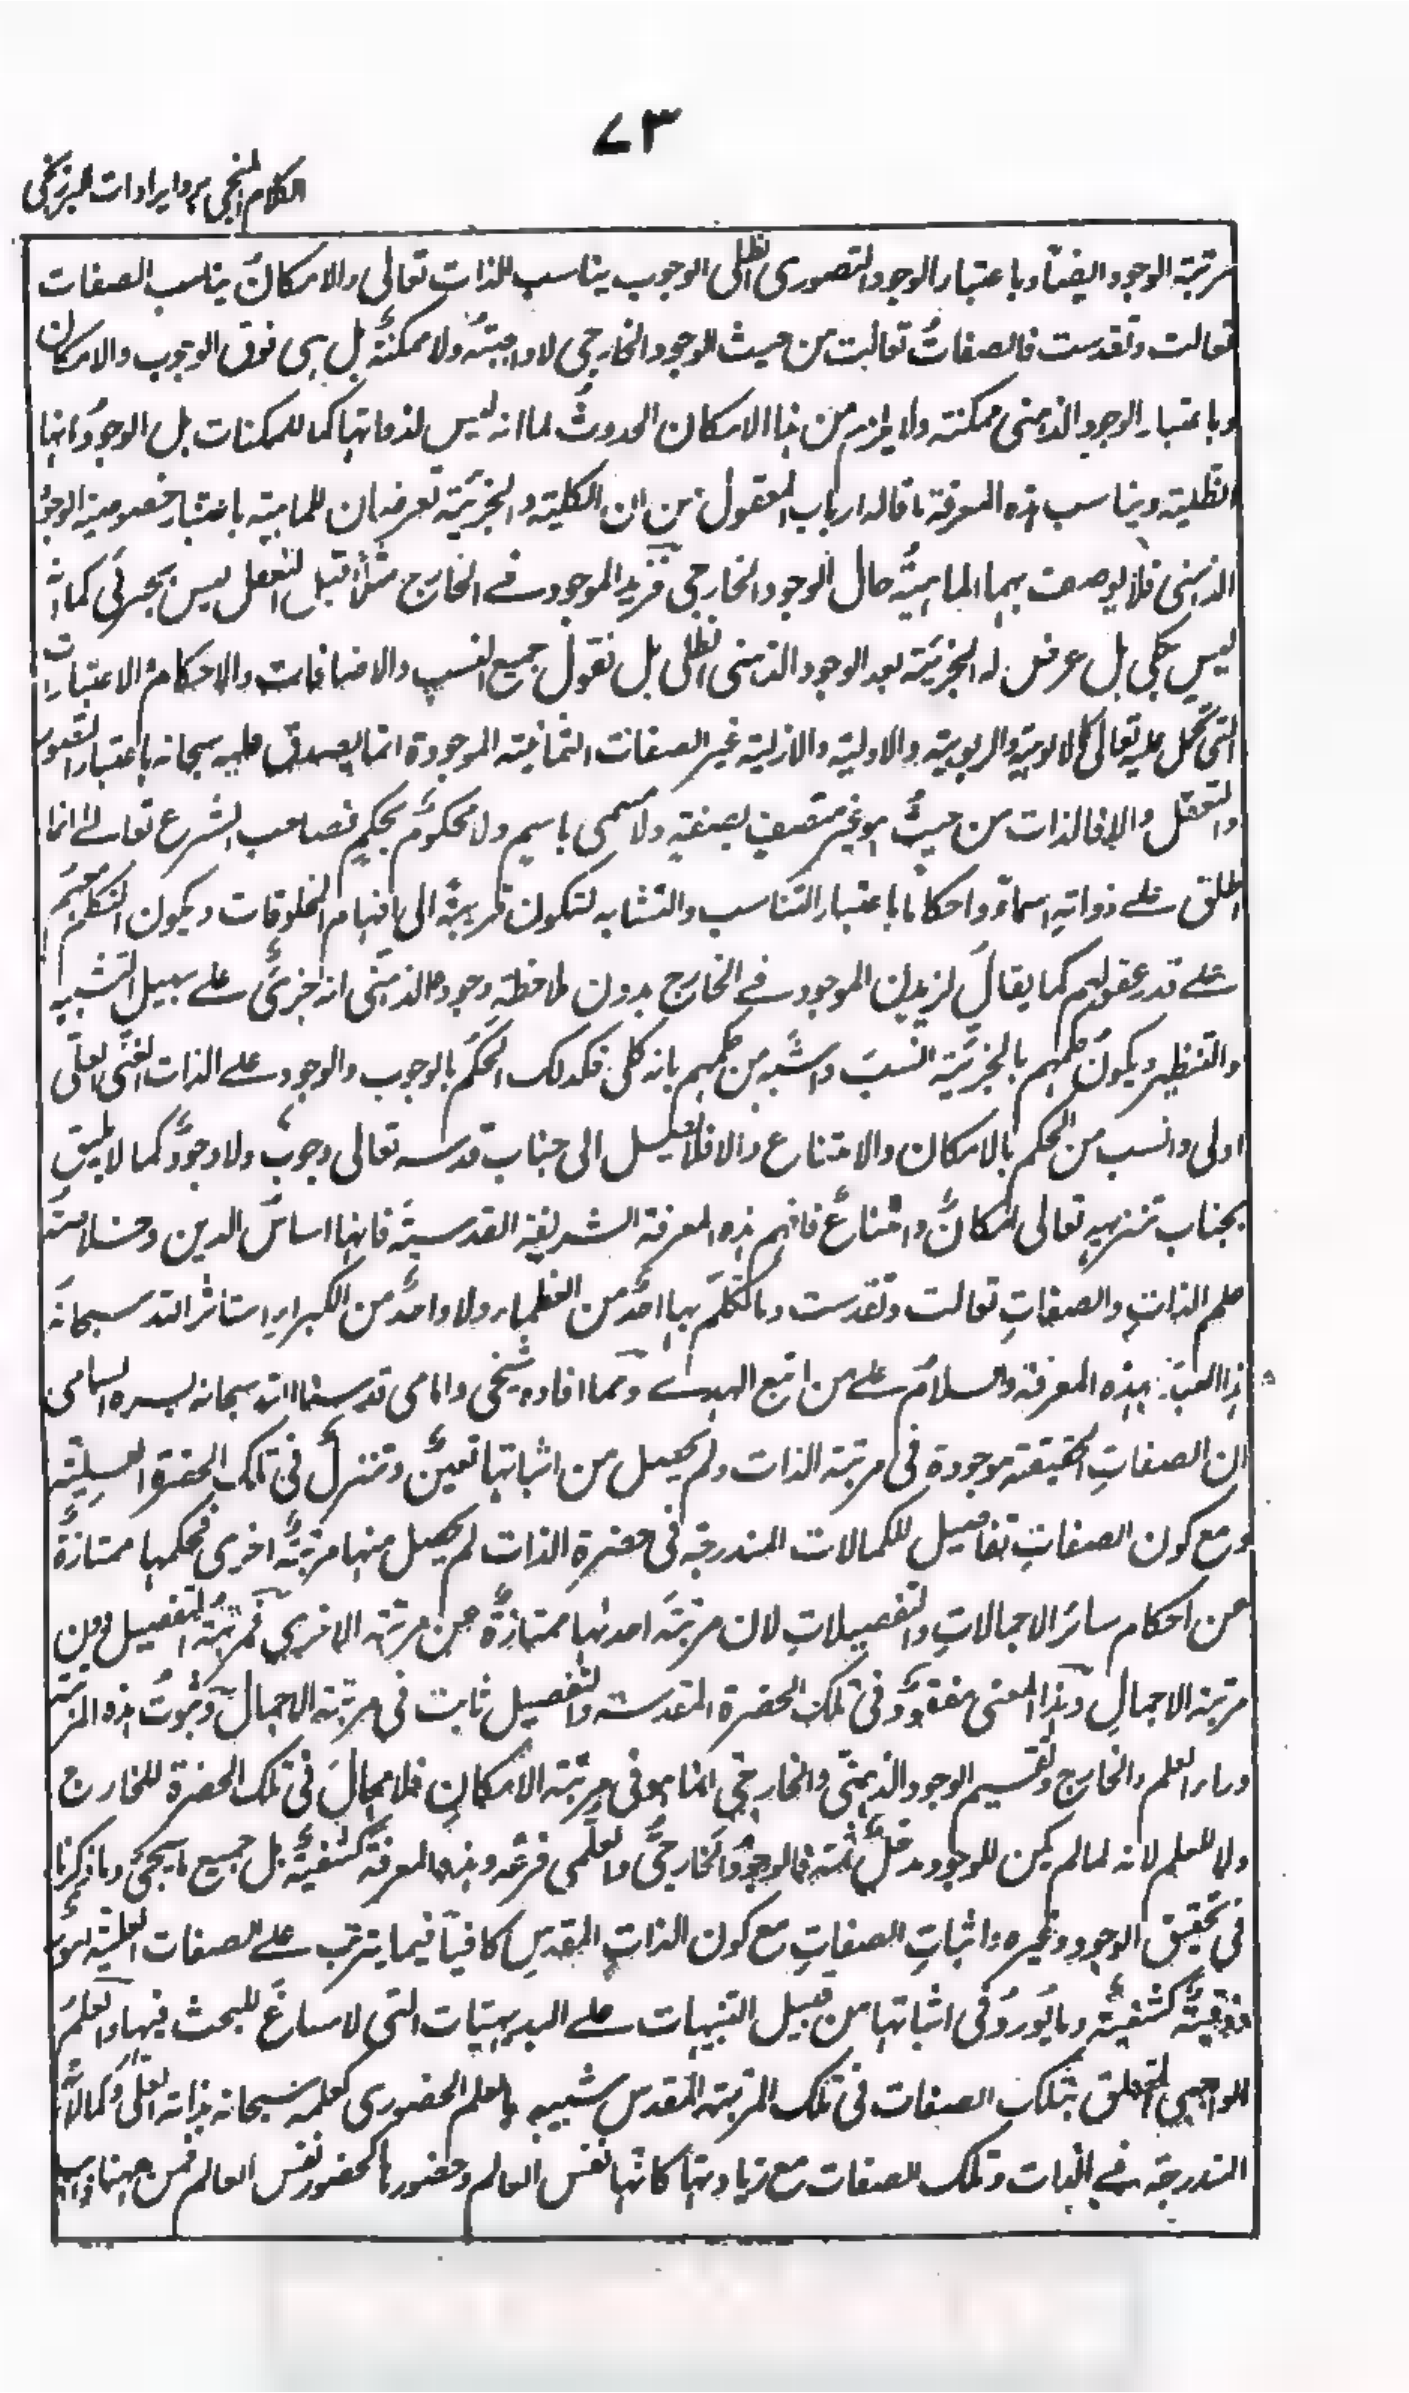 ٧٣
الكلام المنجى برد ايرادات البرزنجى
مرتبة الوجود ايضًا وباعتبار الوجود التصورى الظلى الوجوب يناسب للذات تعالى والامكانُ يناسب الصفات
تعالت وتقدست فالصفاتُ تعالت من حيث الوجود الخارجى لا واجبتهٌ ولا ممكنتهٌ بل هى فوق الوجوب والامكان
وباعتبار الوجود الذهنى ممكنته ولا يلزم من هذا الامكان الحدوثُ لما انه ليس لذواتها كما للممكنات بل الوجوداتها
الظلية ويناسب هذه المعرفة ما قاله ارباب المعقول من ان الكلية والجزئية تعرضان للماهية باعتبار خصوصية الوجود
الذهنى فلا يوصف بهما الماهيةُ حال الوجود الخارجى فزيد الموجود فے الخارج مثلاً قبل التعقل ليس بجزئى كما انه
ليس بكلى بل عرض له الجزئية بعد الوجود الذهنى الظلى بل نقول جميع النسب والاضافات والاحكام والاعتبارات
التى تحمل عليه تعالى كالالوهية والربوبية والاولية والازلية غير الصفات الثمانية الموجودة انما يصدق عليه سبحانه باعتبار التصور
والتعقل والا فالذات من حيثُ هو غير متصف بصفةٍ ولا مسمى باسم ولا محكومٌ بحكم فصاحب الشرع تعالےٰ انما
اطلق علے ذواته اسماءً واحكاما باعتبار التناسب والتشابه لتكون قريبةً الى افهام المخلوقات ويكون التكلم معهم
علے قدر عقولهم كما يقال لزيدن الموجود فے الخارج بدون ملاحظة وجوده الذهنى انه جزئى علے سبيل التشبيه
والتنظير ويكون حكمهم بالجزئية انسبَ واشبه من حكمهم بانه كلى فكذلك الحكم بالوجوب والوجود علے الذات الغنى العلى
اولى وانسب من الحكم بالامكان والامتناع والا فلا يصل الى جناب قدسه تعالى وجوبٌ ولا وجودٌ كما لا يليق
بجناب تنزيهه تعالى امكانٌ وامتناعٌ فافهم هذه المعرفة الشريفة القدسيةَ فانها اساس الدين وخلاصتهُ
علم الذاتِ والصفاتِ تعالت وتقدست وما تكلّمَ بها احدٌ من العظماء ولا واحدٌ من الكبراء استاثر الله سبحانه
هذا العبدَ بهذه المعرفة والسلامُ علے من اتبع الهدے ومما افاده شيخى وامامى قدسنا الله سبحانه بسره السامى
ان الصفاتِ الحقيقته موجودة فى مرتبة الذات ولم يحصل من اثباتها تعينٌ وتنزلٌ فى تلك الحضرة العلية
ومع كون الصفاتِ تفاصيل للكمالات المندرجة فى حضرة الذات لم يحصل منها مرتبةٌ اخرى فحكمها ممتازةٌ
عن احكام سائر الاجمالاتِ والتفصيلاتِ لان مرتبةَ احدٰها ممتازةٌ عن مرتبة الاخرى فمرتبة التفصيل دون
مرتبة الاجمالِ وهذا المعنى مفقودٌ فى تلك الحضرة المقدسة والتفصيل ثابت فى مرتبة الاجمال وثبوتُ هذه المرتبة
وراء العلم والخارج وتقسيم الوجود الذهنى والخارجى انما هو فى مرتبة الامكانِ فلا مجالَ فى تلك الحضرة للخارج
ولا للعلم لانه لما لم يكن للوجود مدخلٌ ثمة فالوجود الخارجىُّ والعلمى فرعُه وهذه المعرفة كشفيةٌ بل جميع ما يجئ وما ذكرنا
فى تحقيق الوجود وغيره واثباتِ الصفاتِ مع كون الذاتِ المقدسِ كافياً فيما يترتب علے الصفات العلية امورٌ
ذوقيةٌ كشفيةٌ وما يُورَدُ فى اثباتها من قبيل التنبيهات علے البديهيات التى لا مساغَ للبحث فيها والعلمُ
الواجبى المتعلق بتلك الصفات فى تلك المرتبة المقدس شبيه بالعلم الحضورى كعلمه سبحانه بذاته العلى وكمالاته
المندرجة فے الذات وتلك الصفات مع زيادتها كانها نفس العالم وحضورها كحضور نفس العالم فمن ههنا